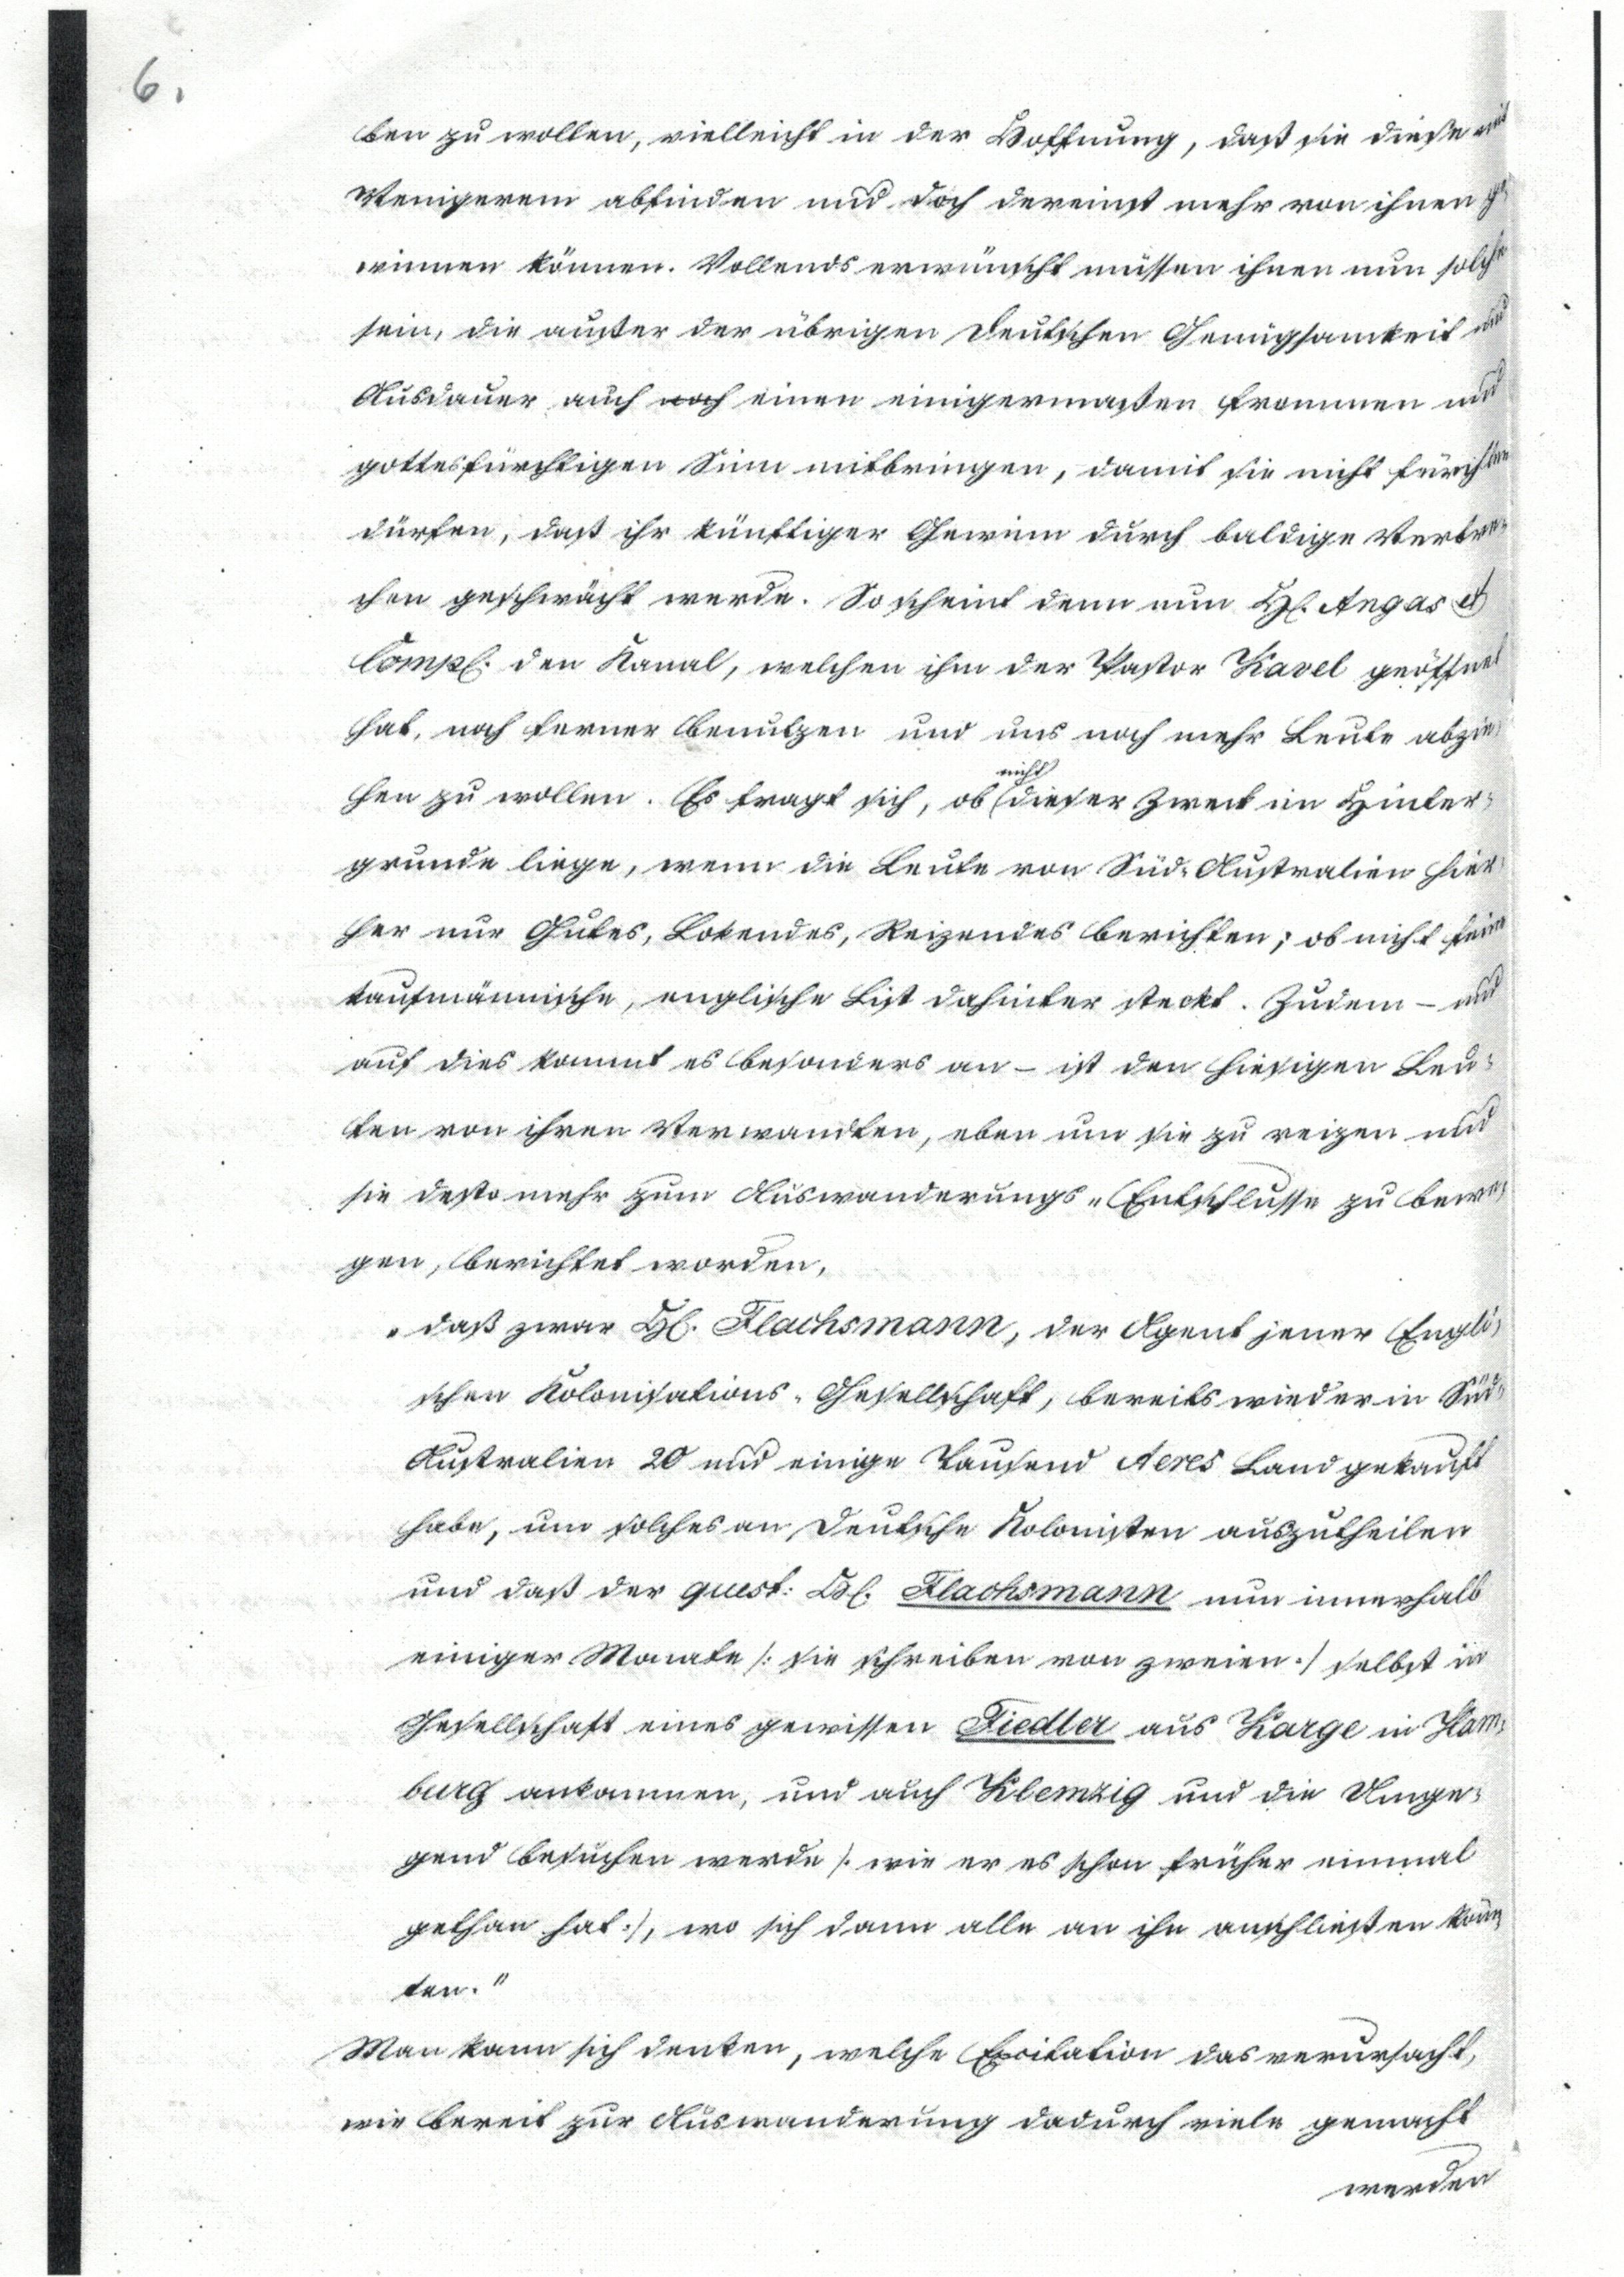 6.
ben zu wollen, vielleicht in der Hoffnung, daß sie diese mit
Wenigerem abfinden und doch dereinst mehr von ihnen ge-
winnen können. Vollends erwünscht müssen ihnen nun solche
sein, die außer der übrigen Deutschen Genügsamkeit und
Ausdauer auch noch einen einigermaßen frommen und
gottesfürchtigen Sinn mitbringen, damit sie nicht fürchten
dürfen, daß ihr künftiger Gewinn durch baldige Verbre-
chen geschwächt werde. So scheint denn nun H. Angas et
Comp. den Kanal, welchen ihm der Pastor Kavel geöffnet
hat, noch ferner benutzen und uns noch mehr Leute abzie-
hen zu wollen. Es fragt sich, ob nicht dieser Zweck im Hinter-
grunde liege, wenn die Leute von Süd-Australien hier-
her nur Gutes, Lokendes, Reizendes berichten; ob nicht feine
kaufmännische, englische List dahinter steckt. Zudem – und
auf dies kommt es besonders an – ist den hiesigen Leu-
ten von ihren Verwandten, eben um sie zu reizen und
sie desto mehr zum Auswanderungs-Entschlusse zu bewe-
gen, berichtet worden,
"daß zwar H. Flachsmann, der Agent jener Engli-
schen Kolonisations-Gesellschaft, bereits wieder in Süd-
Australien 20 und einige Tausend Acres Land gekauft
habe, um solches an Deutsche Kolonisten auszutheilen
und daß der quest: H. Flachsmann nun innerhalb
einiger Monate /: sie schreiben von zweien :/ selbst in
Gesellschaft eines gewissen Fiedler aus Karge in Ham-
burg ankommen, und auch Klemzig und die Umge-
gend besuchen werde /: wie er es schon früher einmal
gethan hat :/, wo sich dann alle an ihn anschließen könn-
ten."
Man kann sich denken, welche Excitation das verursacht,
wie bereit zur Auswanderung dadurch viele gemacht
werden